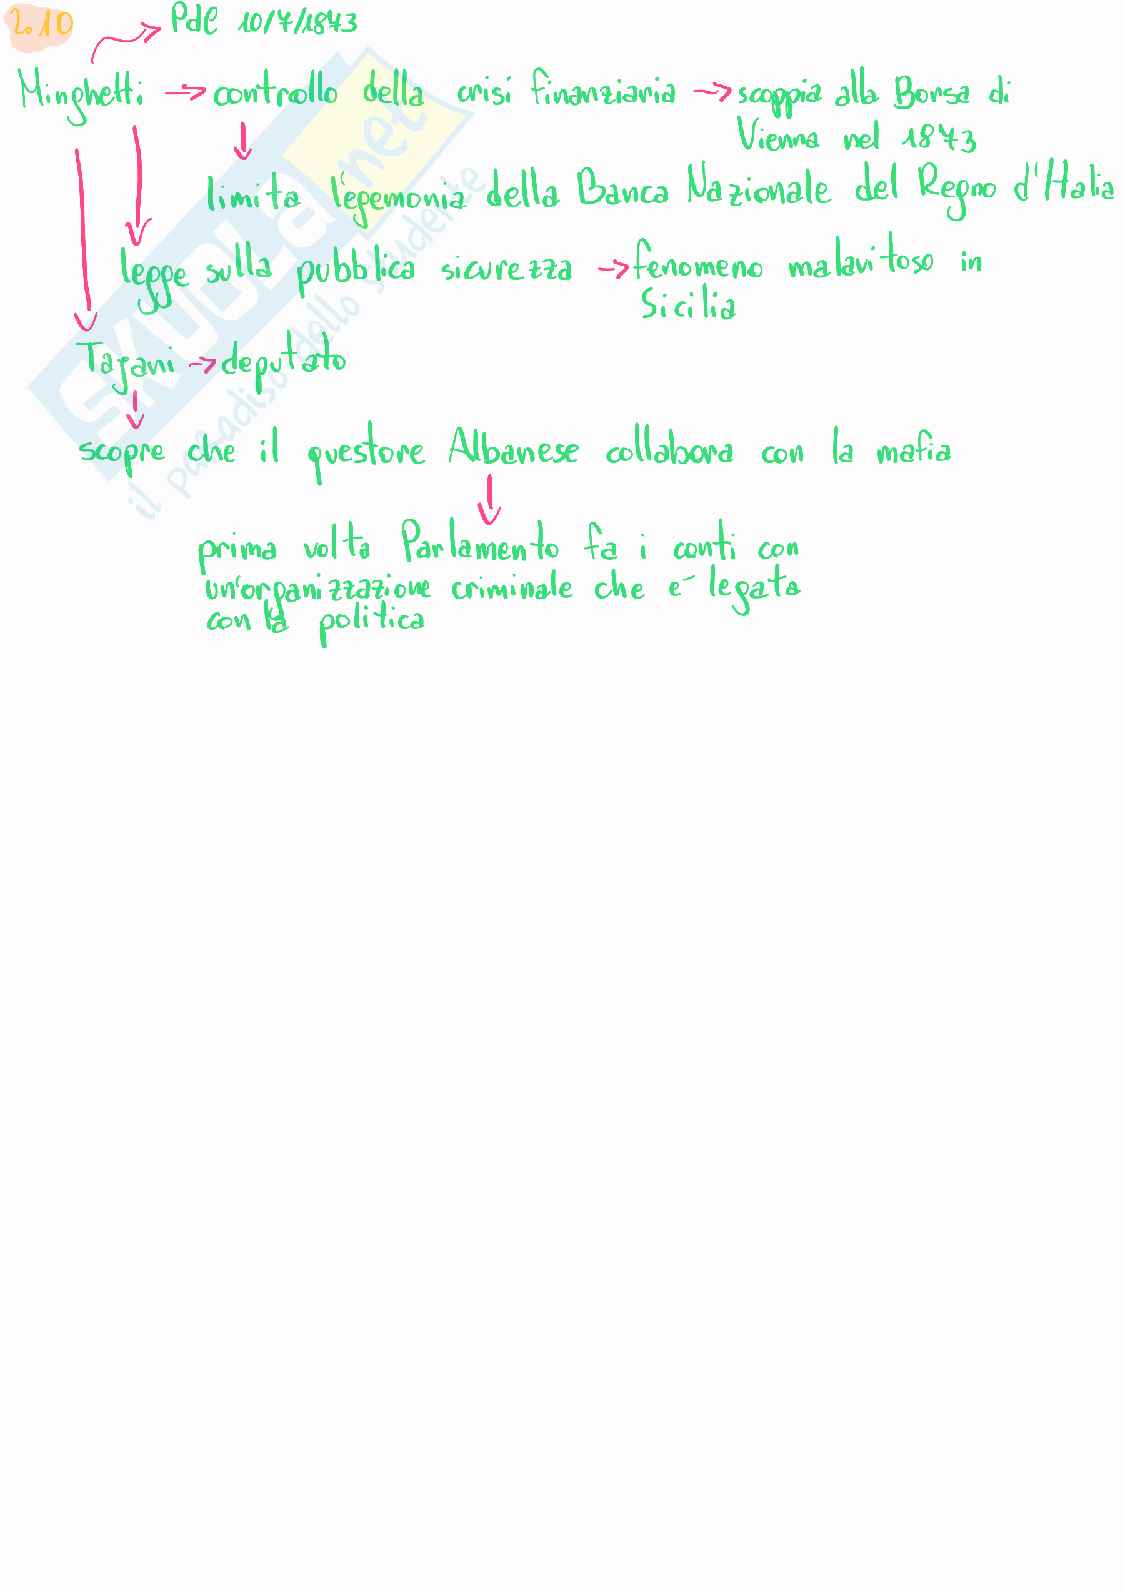 2.10
PdC 10/7/1873
Minghetti → controllo della crisi finanziaria → scoppia alla Borsa di
Vienna nel 1873
limita l'egemonia della Banca Nazionale del Regno d'Italia
legge sulla pubblica sicurezza → fenomeno malavitoso in
Sicilia
Tajani → deputato
scopre che il questore Albanese collabora con la mafia
prima volta Parlamento fa i conti con
un'organizzazione criminale che e- legata
con la politica
SKUOLA.net
il paradiso dello studente